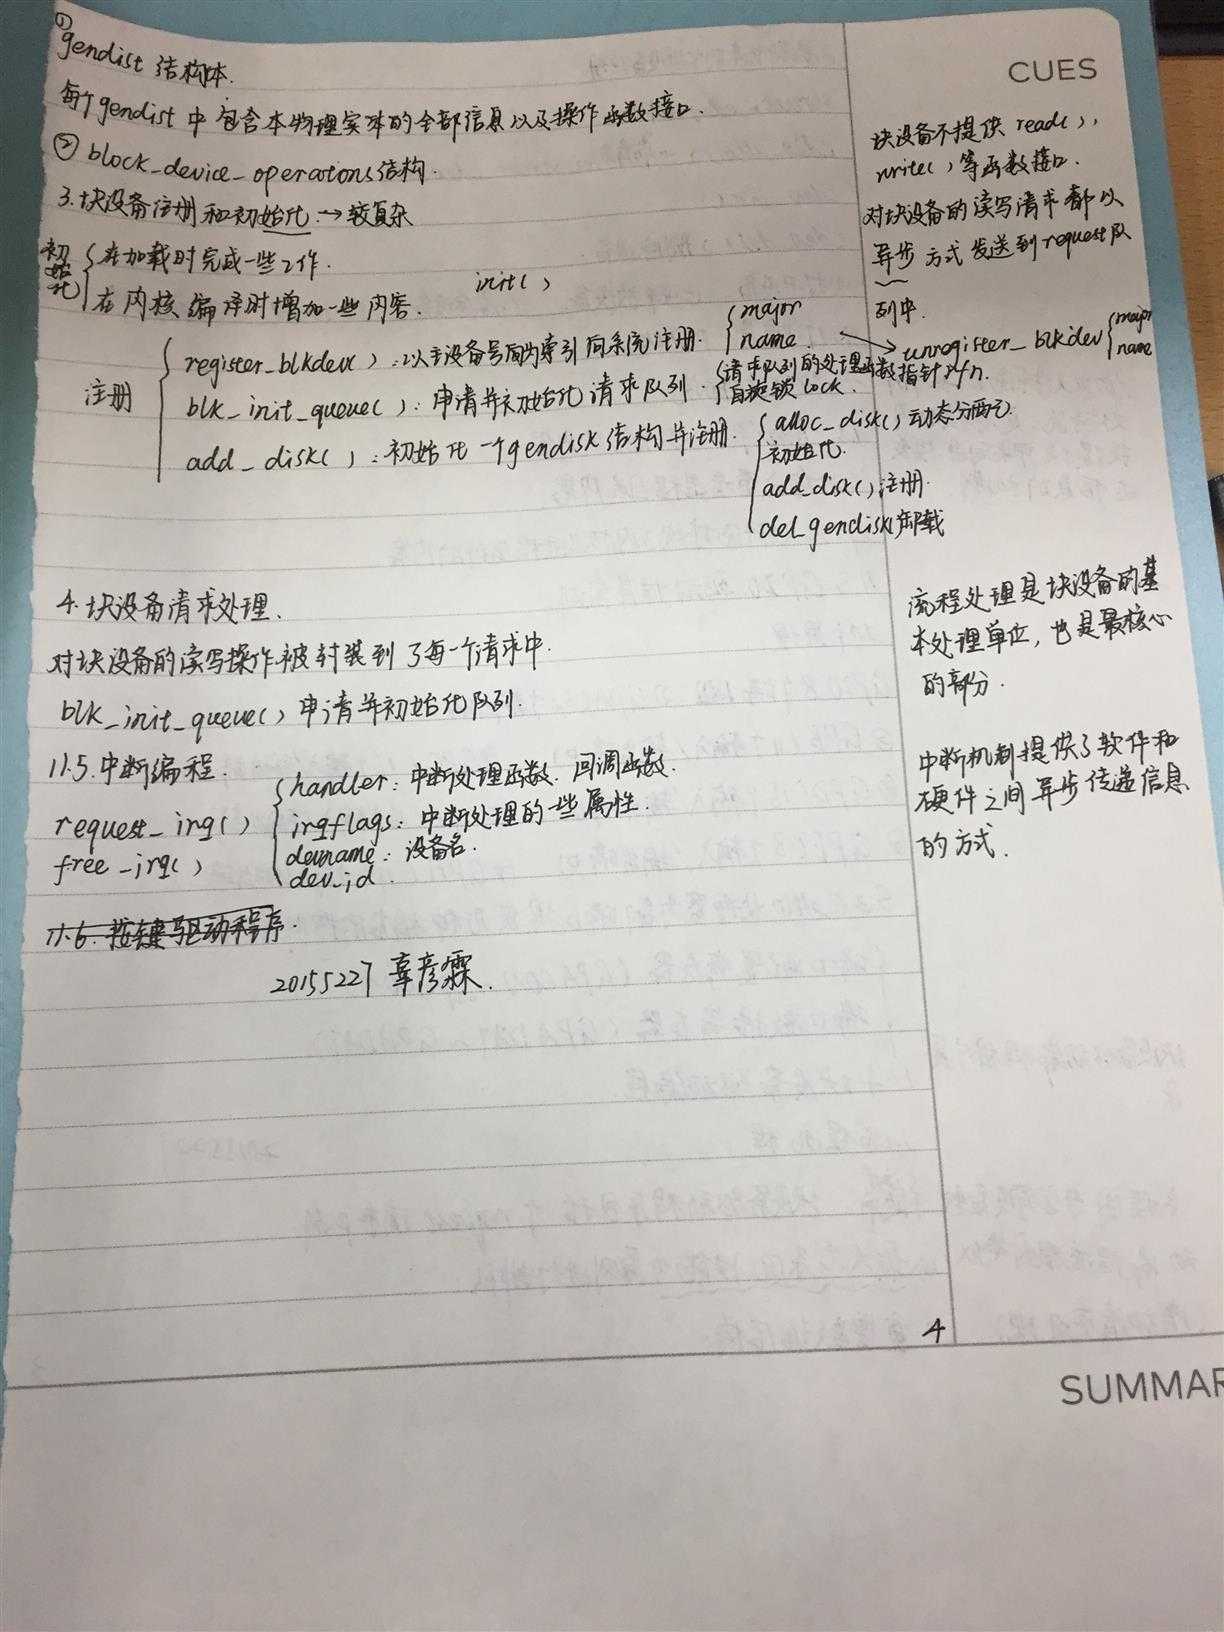 ① gendist 结构体.
每个gendist 中包含本物理实体的全部信息以及操作函数接口.
② block_device_operations结构.
3. 块设备注册和初始化 → 较复杂
初始化 { 在加载时完成一些工作.
在内核编译时增加一些内容. init()
注册 { register_blkdev(): 以主设备号为索引向系统注册. { major
name → unregister_blkdev { major
name
blk_init_queue(): 申请并初始化请求队列. { 请求队列的处理函数指针rfn.
自旋锁 lock.
add_disk(): 初始化一个gendisk结构并注册. { alloc_disk() 动态分配
初始化.
add_disk() 注册.
del_gendisk() 卸载
4. 块设备请求处理.
对块设备的读写操作被封装到了每一个请求中.
blk_init_queue() 申请并初始化队列.
11.5. 中断编程.
request_irq() { handler: 中断处理函数. 回调函数.
irqflags: 中断处理的一些属性.
devname: 设备名.
dev_id.
free_irq()
11.6. 按键驱动程序.
20155227 辜彦霖.
CUES
块设备不提供 read(),
write() 等函数接口.
对块设备的读写请求都以
异步方式发送到request队
列中.
流程处理是块设备的基
本处理单位, 也是最核心
的部分.
中断机制提供了软件和
硬件之间异步传递信息
的方式.
4
SUMMAR